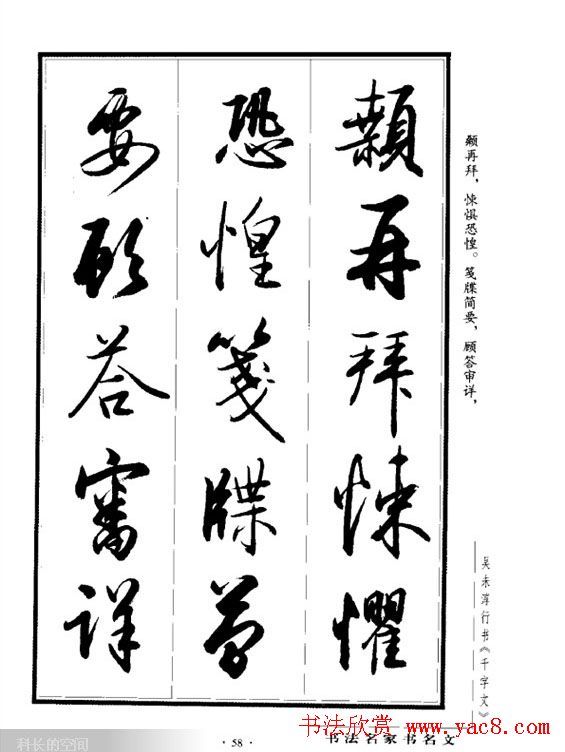 顙再拜悚懼
恐惶箋牒簡
要顧答審詳
颡再拜，悚惧恐惶。笺牒简要，顾答审详，
吴未淳行书《千字文》
· 58 ·
书法名家书名文
书法欣赏 www.yac8.com
科长的空间